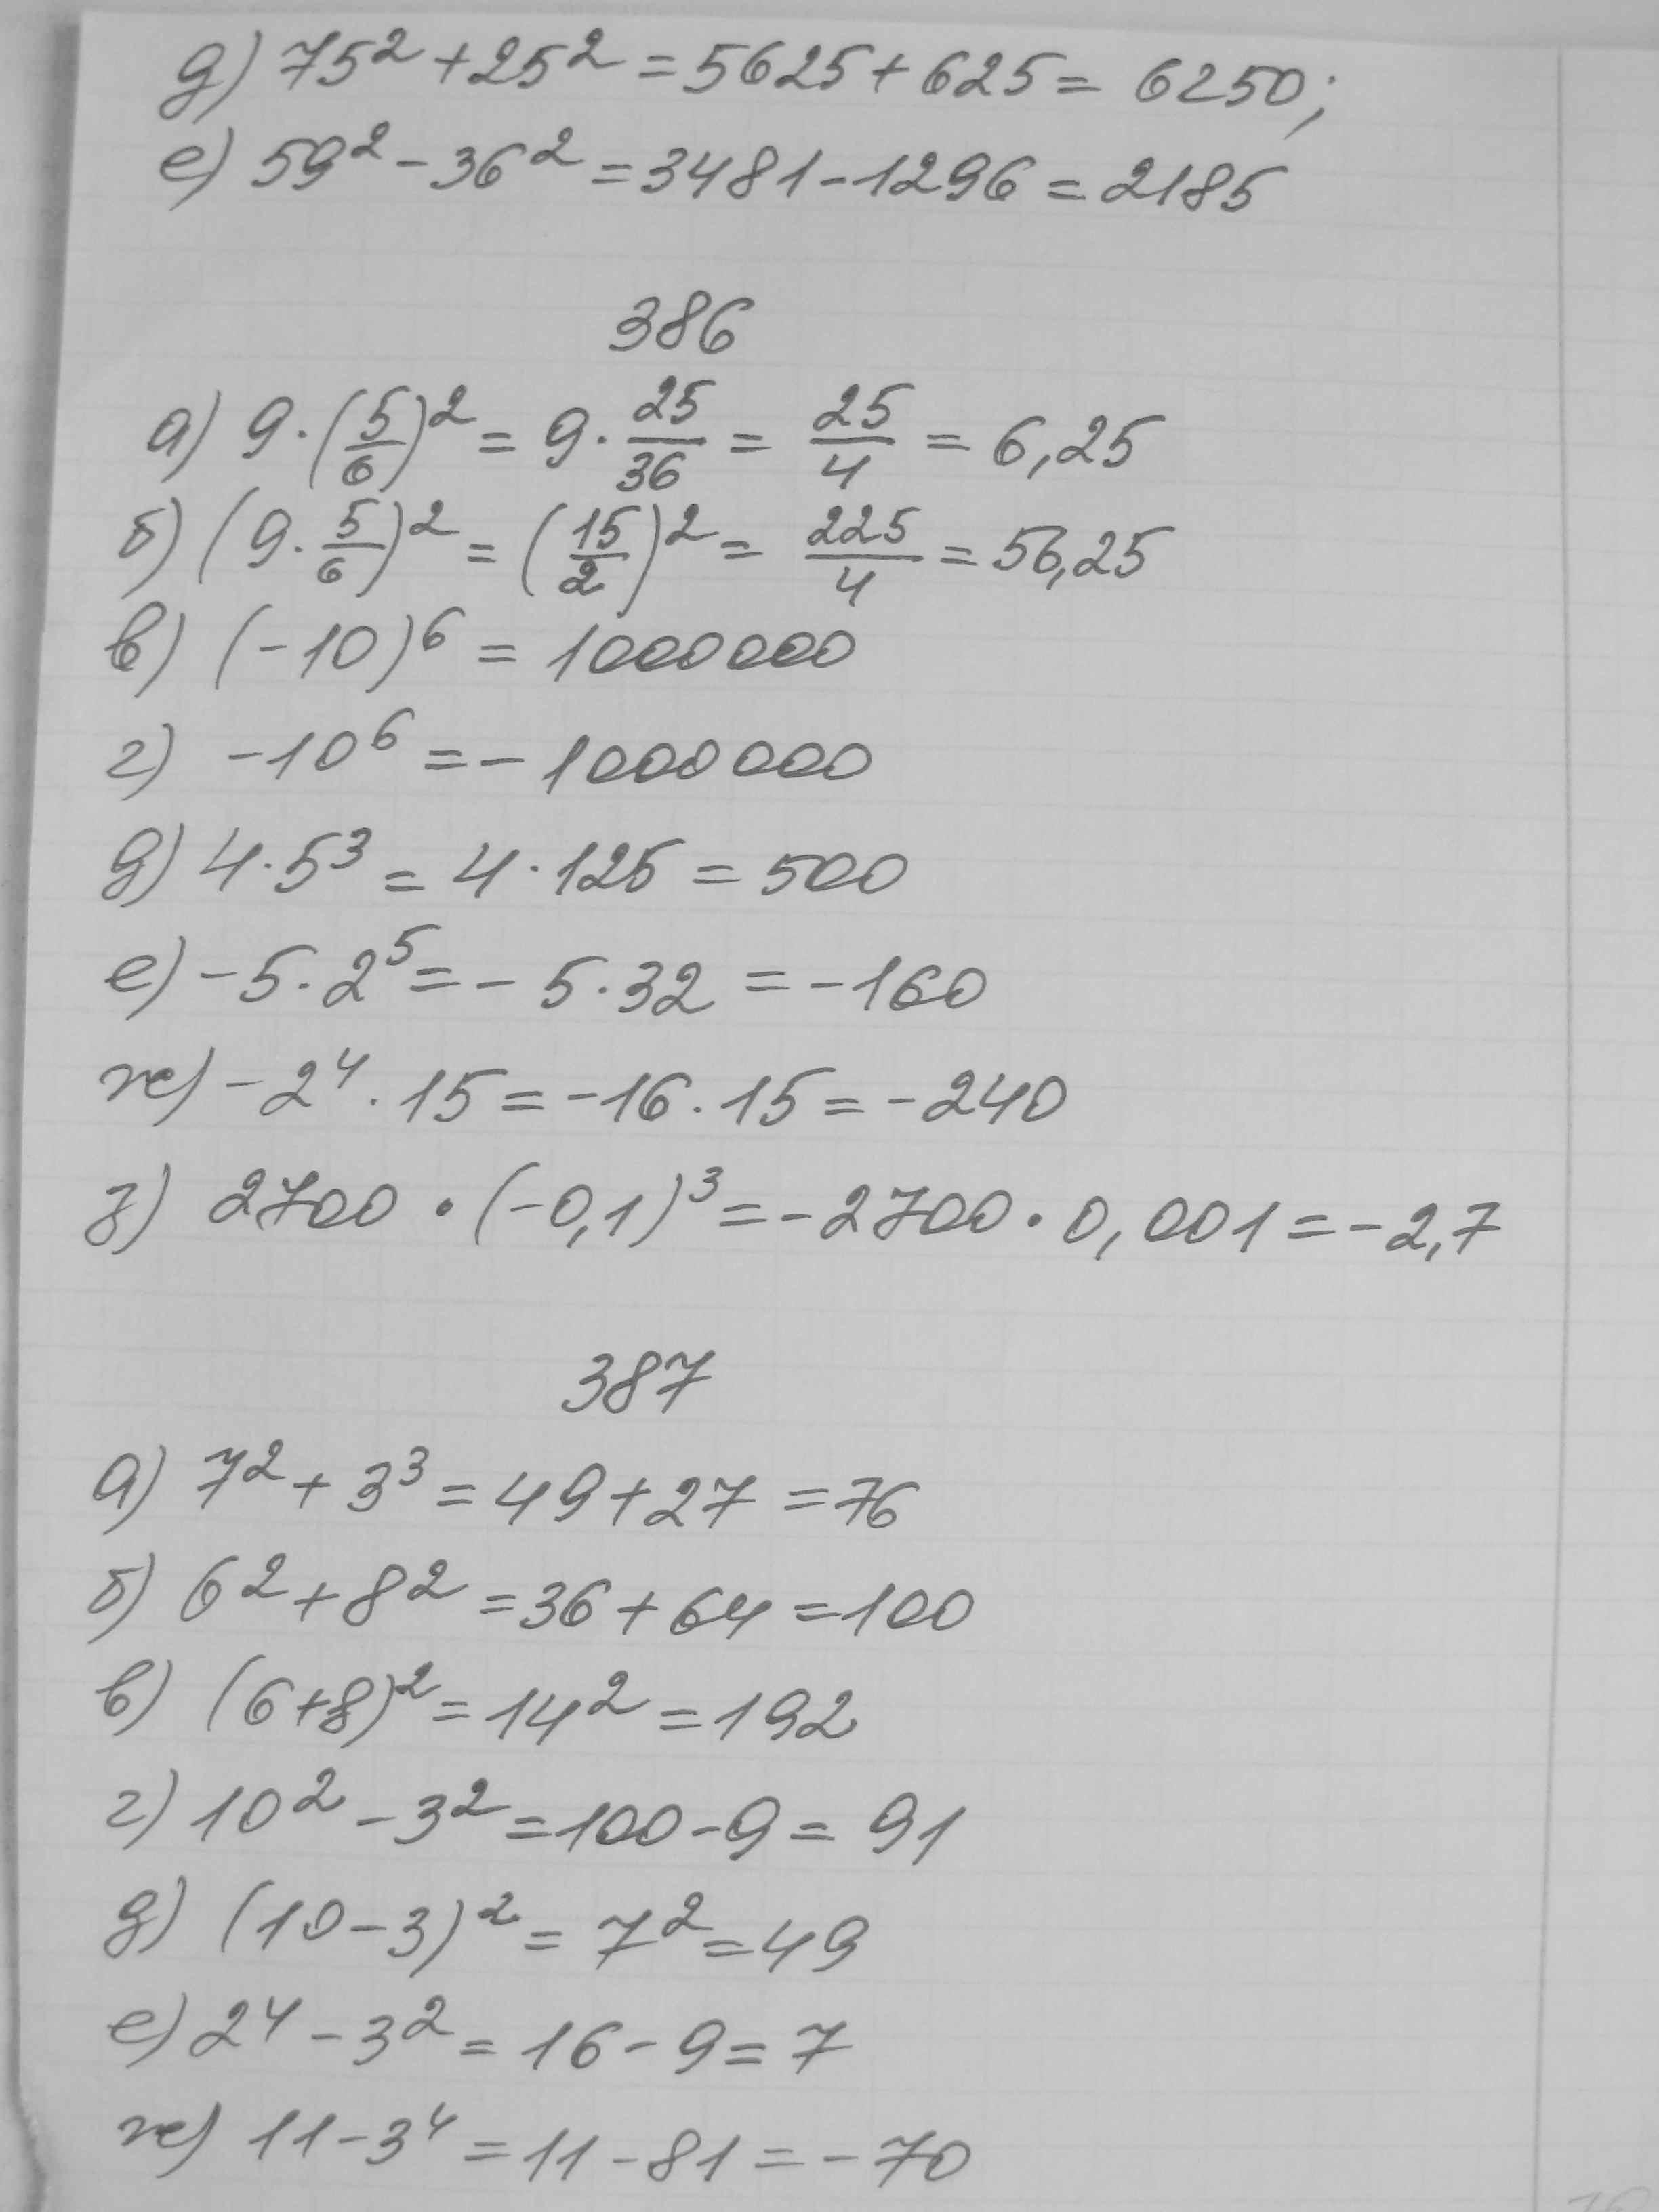 д) 75² + 25² = 5625 + 625 = 6250;
е) 59² - 36² = 3481 - 1296 = 2185
386
а) 9 · (5/6)² = 9 · 25/36 = 25/4 = 6,25
б) (9 · 5/6)² = (15/2)² = 225/4 = 56,25
в) (-10)⁶ = 1000000
г) -10⁶ = -1000000
д) 4 · 5³ = 4 · 125 = 500
е) -5 · 2⁵ = -5 · 32 = -160
ж) -2⁴ · 15 = -16 · 15 = -240
з) 2700 · (-0,1)³ = -2700 · 0,001 = -2,7
387
а) 7² + 3³ = 49 + 27 = 76
б) 6² + 8² = 36 + 64 = 100
в) (6+8)² = 14² = 192
г) 10² - 3² = 100 - 9 = 91
д) (10 - 3)² = 7² = 49
е) 2⁴ - 3² = 16 - 9 = 7
ж) 11 - 3⁴ = 11 - 81 = -70